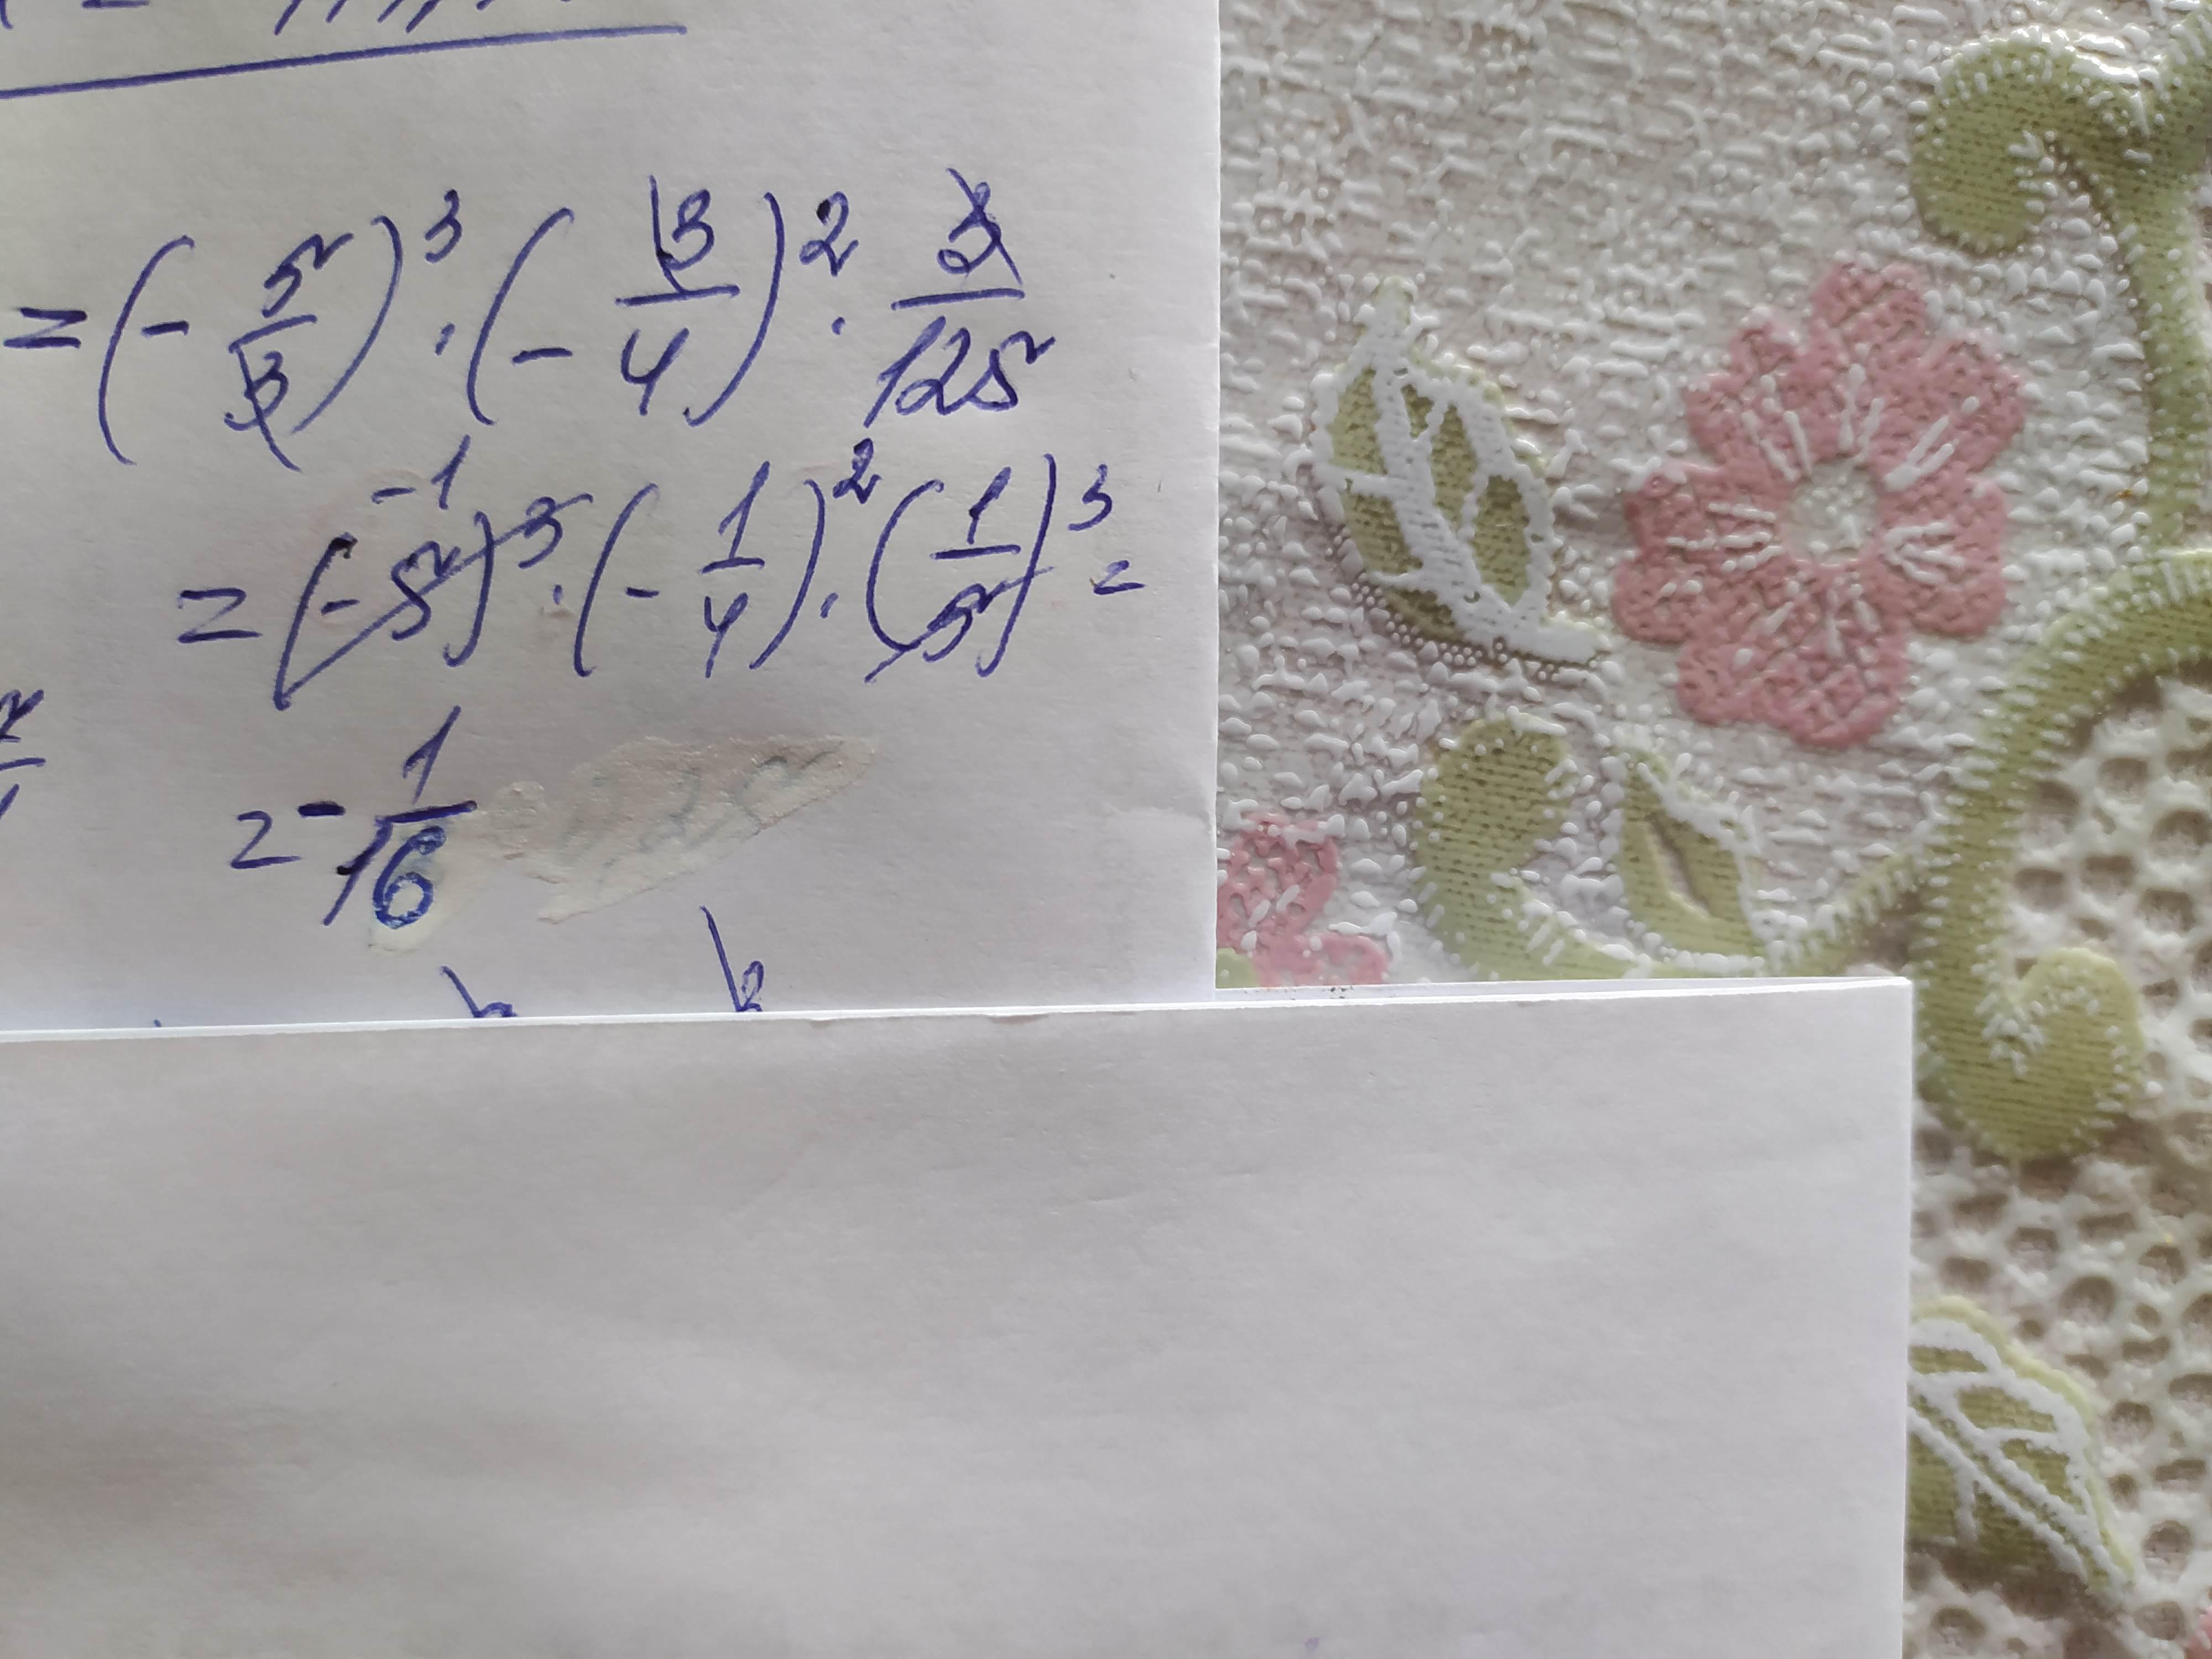 = (- 5/3)³ · (- 3/4)² · 3/125
-1
= (-5)³ · (- 1/4)² · (1/5)³ =
= - 1/16